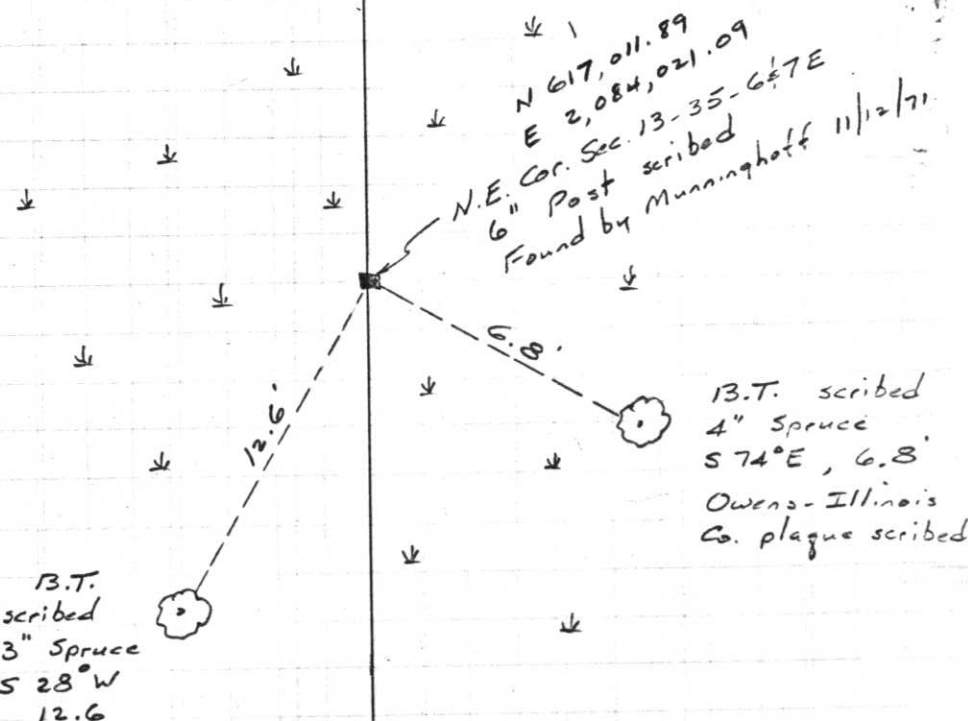 N 617,011.89
E 2,084,021.09
N.E. Cor. Sec. 13-35-6&7E
6" Post scribed
Found by Munninghoff 11/12/71
6.8'
12.6'
B.T. scribed
4" Spruce
S 74°E, 6.8'
Owens-Illinois
Co. plaque scribed
B.T.
scribed
3" Spruce
S 28°W
12.6